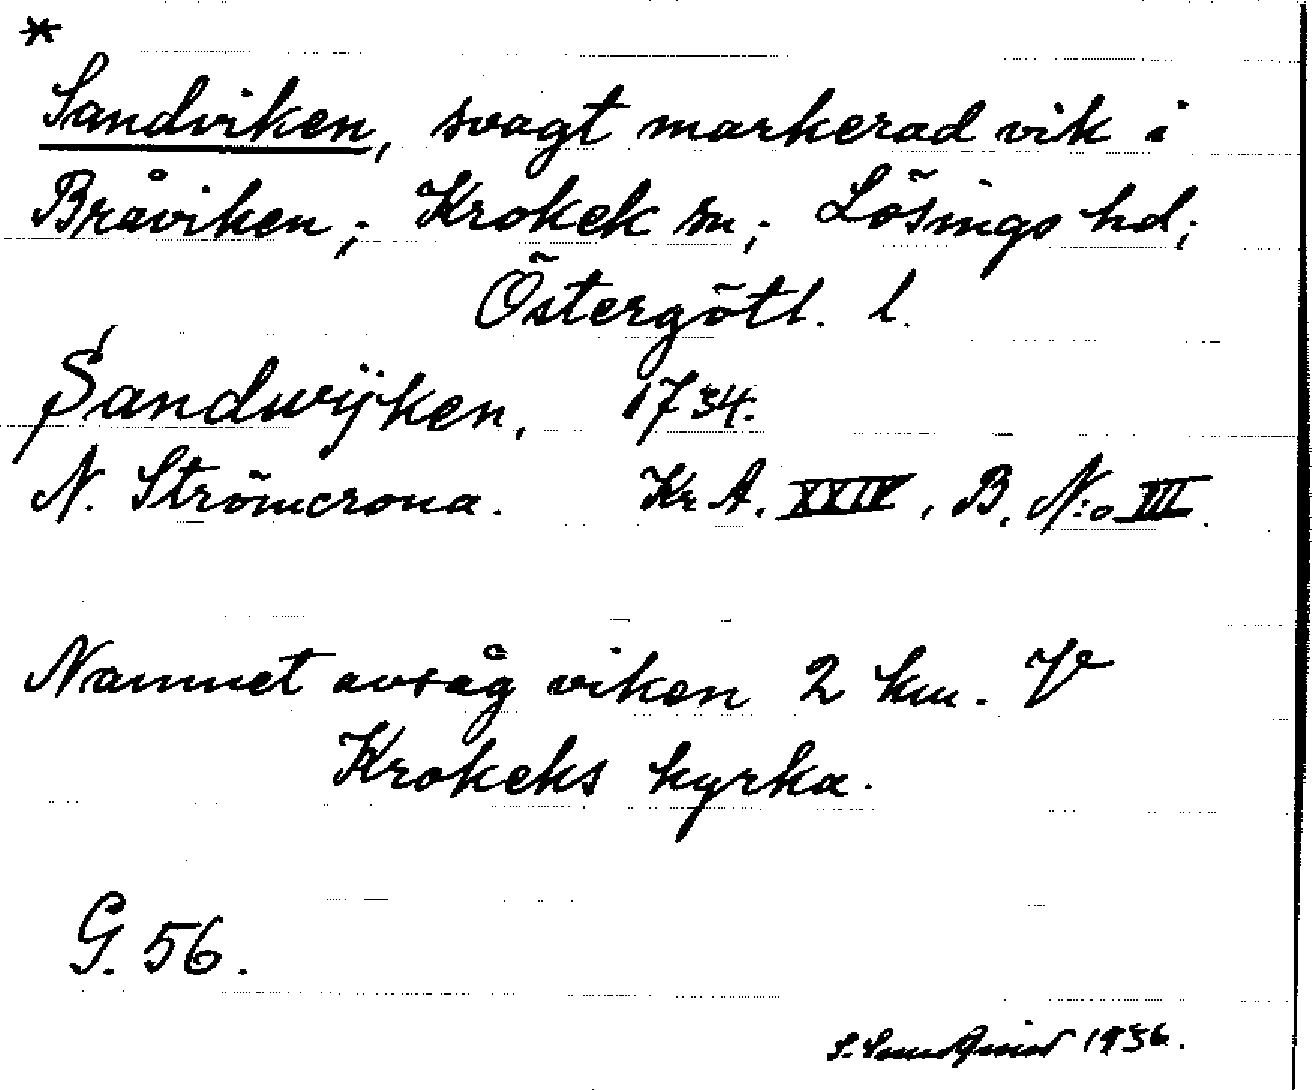 *
Sandviken, svagt markerad vik i
Bråviken; Krokek sn; Lösings hd;
Östergötl. l.
Sandwijken, 1734.
N. Strömcrona. Kr A. XXIV, B. N:o III.
Namnet avsåg viken 2 km. V
Krokeks kyrka.
G. 56.
1936.